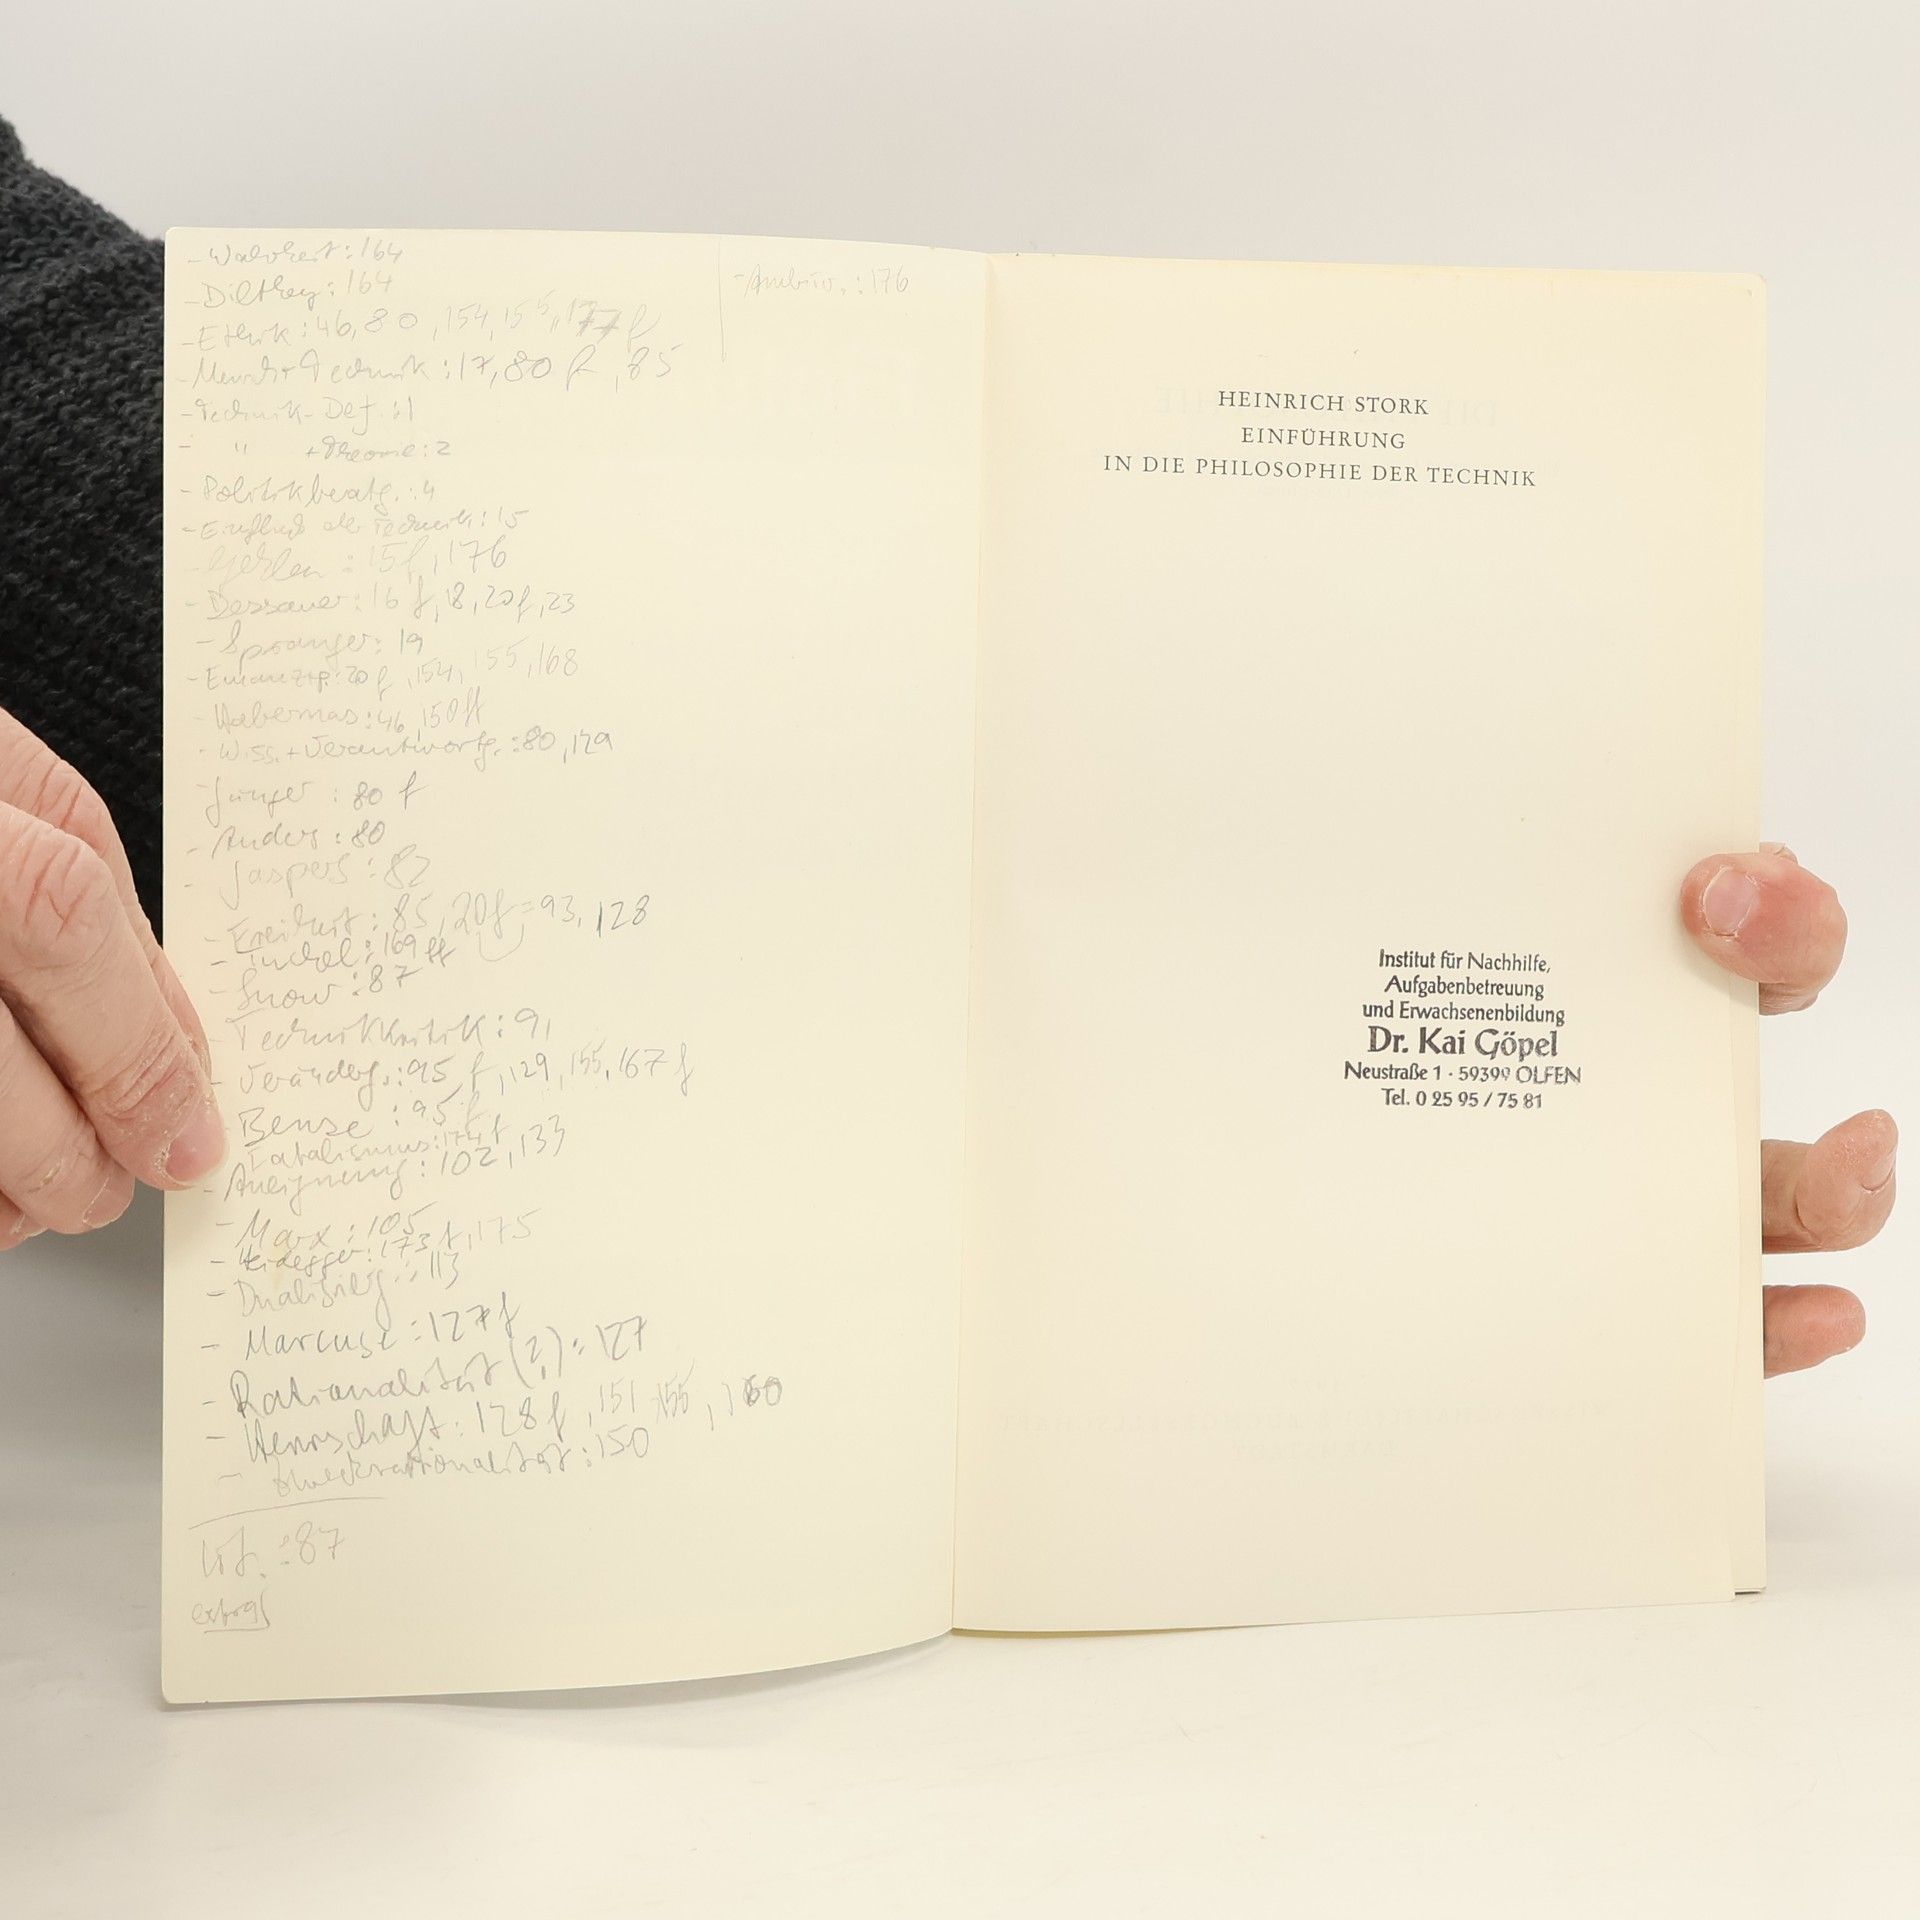 - Wahrheit: 164
- Dilthey: 164
- Ethik: 46, 80, 154, 155, 177 f
- Mensch + Technik: 17, 80 f, 85
- Technik-Def.: 1
- " + Theorie: 2
- Politikberatg.: 4
- Einfluß der Technik: 15
- Gehlen: 15 f, 176
- Dessauer: 16 f, 18, 20 f, 23
- Spranger: 19
- Emanzip.: 20 f, 154, 155, 168
- Habermas: 46, 150 ff
- Wiss. + Verantwortg.: 80, 129
- Jünger: 80 f
- Anders: 80
- Jaspers: 82
- Freiheit: 85, 20 f = 93, 128
- Tuchel: 169 ff
- Snow: 87
- Technikkritik: 91
- Veränderg.: 95 f, 129, 155, 167 f
- Bense: 95 f
Fatalismus: 174 f
- Aneignung: 102, 133
- Marx: 105
- Heidegger: 173 f, 175
- 113
- Marcuse: 127 f
- Rationalität (?): 127
- Herrschaft: 128 f, 151, 155, 160
- Zweckrationalität: 150
Lit.: 87
- Ambiv.: 176
HEINRICH STORK
EINFÜHRUNG
IN DIE PHILOSOPHIE DER TECHNIK
Institut für Nachhilfe,
Aufgabenbetreuung
und Erwachsenenbildung
Dr. Kai Göpel
Neustraße 1 · 59399 OLFEN
Tel. 0 25 95 / 75 81